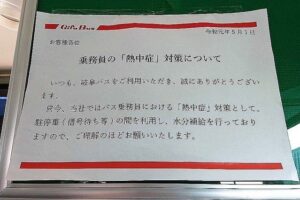 Gifu Bus
令和元年5月1日
お客様各位
乗務員の「熱中症」対策について
いつも、岐阜バスをご利用いただき、誠にありがとうございま
す。
只今、当社ではバス乗務員における「熱中症」対策として、
駐停車(信号待ち等)の間を利用し、水分補給を行っており
ますので、ご理解のほどお願いいたします。